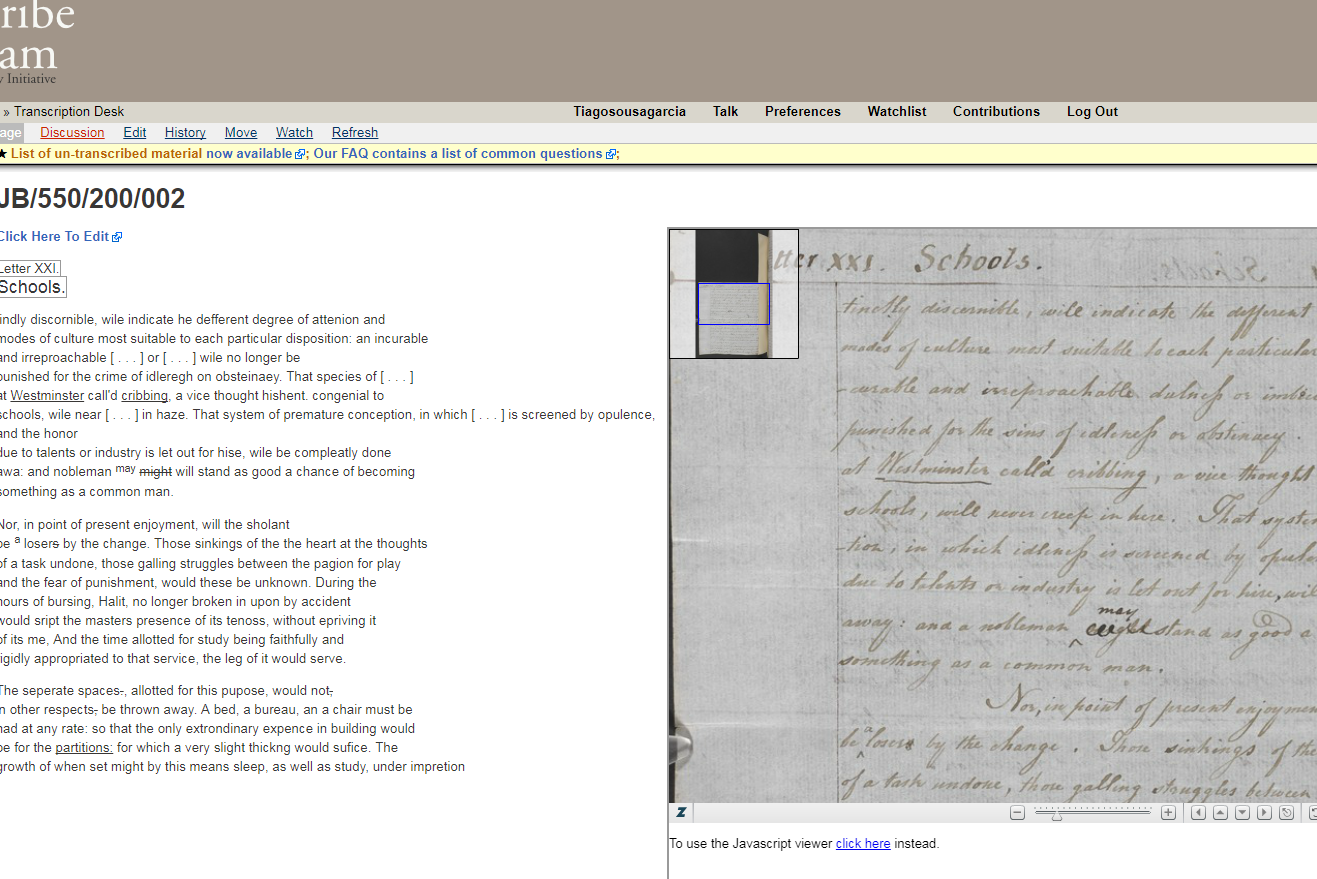 ribe
am
y Initiative
» Transcription Desk
Tiagosousagarcia Talk Preferences Watchlist Contributions Log Out
age Discussion Edit History Move Watch Refresh
★ List of un-transcribed material now available; Our FAQ contains a list of common questions;
JB/550/200/002
Click Here To Edit
Letter XXI.
Schools.
indly discornible, wile indicate he defferent degree of attenion and
modes of culture most suitable to each particular disposition: an incurable
and irreproachable [ . . . ] or [ . . . ] wile no longer be
punished for the crime of idleregh on obsteinaey. That species of [ . . . ]
at Westminster call'd cribbing, a vice thought hishent. congenial to
schools, wile near [ . . . ] in haze. That system of premature conception, in which [ . . . ] is screened by opulence,
and the honor
due to talents or industry is let out for hise, wile be compleatly done
awa: and nobleman may might will stand as good a chance of becoming
something as a common man.
Nor, in point of present enjoyment, will the sholant
be a losers by the change. Those sinkings of the the heart at the thoughts
of a task undone, those galling struggles between the pagion for play
and the fear of punishment, would these be unknown. During the
hours of bursing, Halit, no longer broken in upon by accident
would sript the masters presence of its tenoss, without epriving it
of its me, And the time allotted for study being faithfully and
rigidly appropriated to that service, the leg of it would serve.
The seperate spaces-, allotted for this pupose, would not,
in other respects, be thrown away. A bed, a bureau, an a chair must be
had at any rate: so that the only extrondinary expence in building would
be for the partitions: for which a very slight thickng would sufice. The
growth of when set might by this means sleep, as well as study, under impretion
tter XXI. Schools.
tinctly discernible, will indicate the different
modes of culture most suitable to each particular
-curable and irreproachable dulness or imbec
punished for the sins of idleness or obstinacy.
at Westminster call'd cribbing, a vice thought
schools, will never creep in here. That syste
-tion, in which idleness is screened by opul
due to talents or industry is let out for hire, wil
away: and a nobleman may stand as good a
something as a common man.
Nor, in point of present enjoymen
be a losers by the change. Those sinkings of the
of a task undone, those galling struggles between
To use the Javascript viewer click here instead.